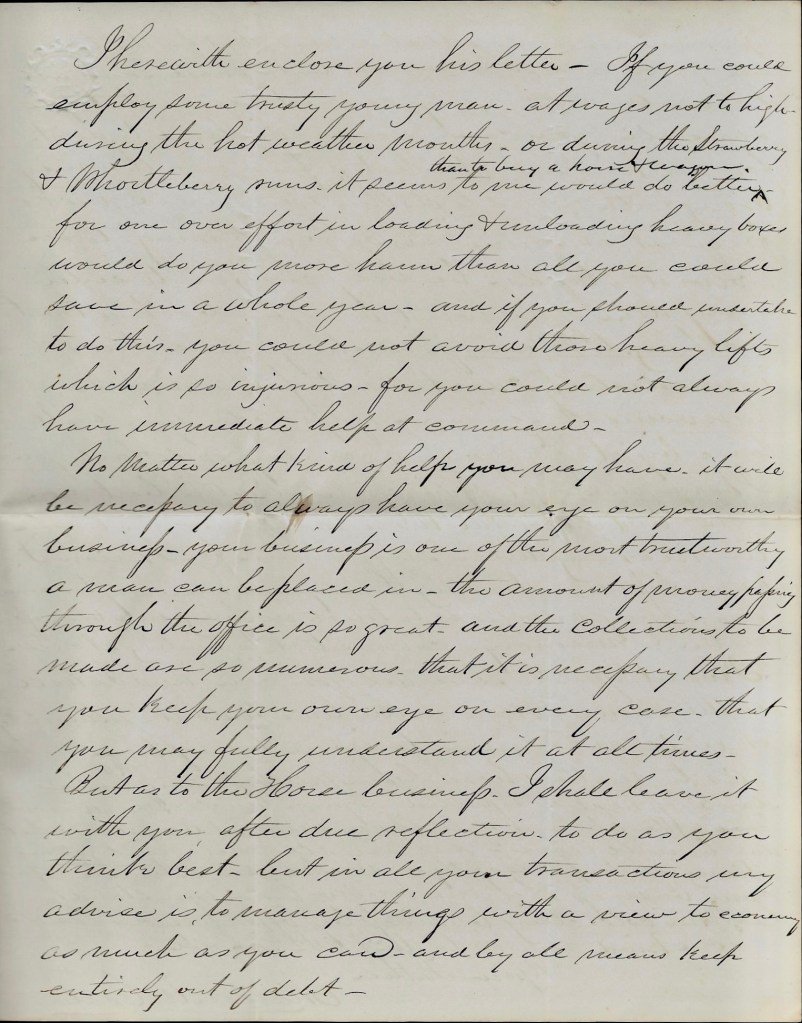 I herewith enclose you his letter – If you could
employ some trusty young man - at wages not to high -
during the hot weather months - or during the Strawberry
than to buy a horse & wagon.
& Whortleberry runs - it seems to me would do better ^ -
for one over effort in loading & unloading heavy boxes
would do you more harm than all you could
save in a whole year - and if you should undertake
to do this - you could not avoid those heavy lifts
which is so injurious - for you could not always
have immediate help at command –
No matter what kind of help you may have - it will
be necessary to always have your eye on your own
business - your business is one of the most trustworthy
a man can be placed in - the amount of money passing
through the office is so great - and the collections to be
made are so numerous - that it is necessary that
you keep your own eye on every case - that
you may fully understand it at all times –
But as to the Horse business - I shall leave it
with you, after due reflection - to do as you
think best - but in all your transactions my
advise is, to manage things with a view to economy
as much as you can - and by all means keep
entirely out of debt –